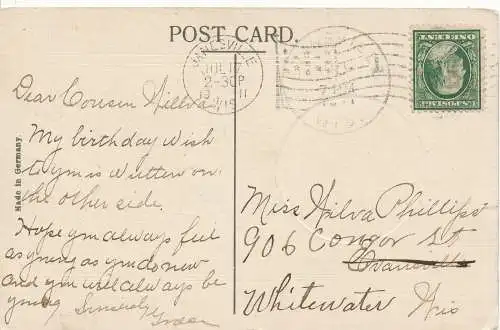 POST CARD.
JANESVILLE
JUL
2-30P
11
WIS
U.S. POSTAGE
ONE CENT
Made in Germany.
Dear Cousin Hilva
My birthday wish
to you is written on
the other side.
Hope you always feel
as young as you do now
and you will always be
young Sincerely
Grace
Miss Hilva Phillips
906 Conger St
Evansville
Whitewater Wis